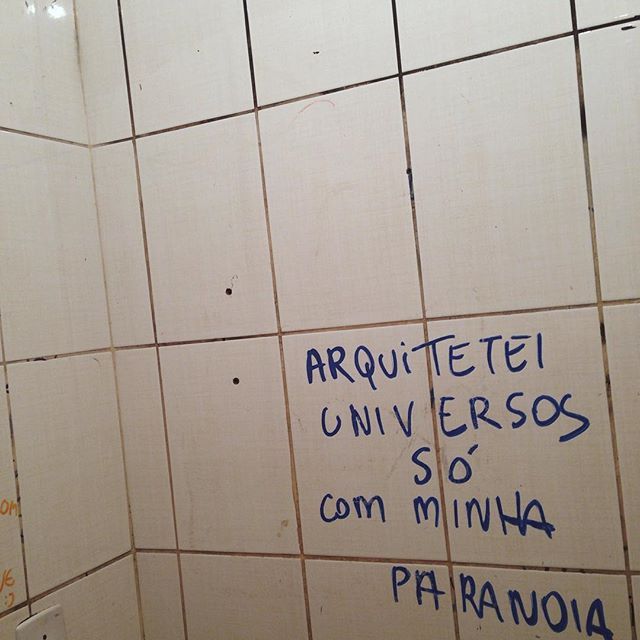 ARQUiTETEI
UNIVERSOS
SÓ
COM MINHA
PARANOIA